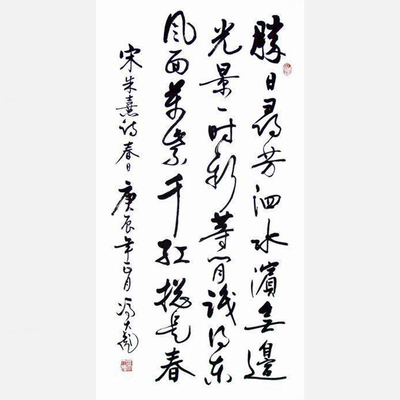 勝日尋芳泗水濱無邊
光景一時新等閒識得東
風面萬紫千紅總是春
宋朱熹詩春日庚辰年正月馮大彪